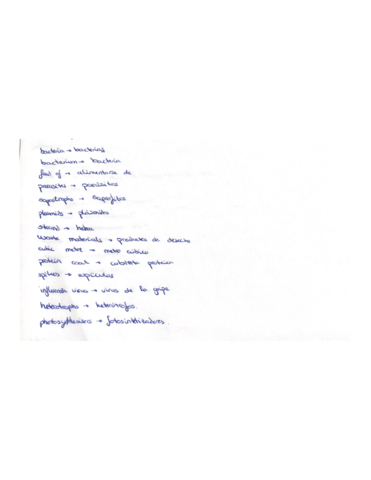 bacteria → bacterias
bacterium → bacteria
feed of → alimentarse de
parasites → parásitos
saprotrophs → saprofitos
plasmids → plásmidos
→ hebra
waste materials → productos de desecho
cubic metre → metro cúbico
protein coat → cubierta proteica
spikes → espículas
influenza virus → virus de la gripe
heterotrophs → heterótrofos.
photosynthesisers → fotosintetizadores.